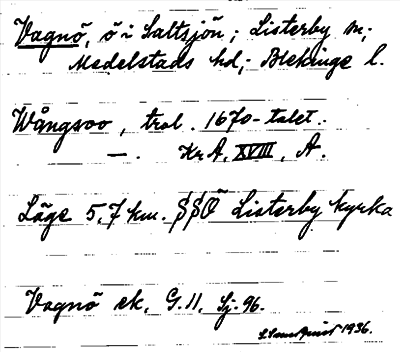 Vagnö, ö i Saltsjön; Listerby sn;
Medelstads hd; Blekinge l.
Wångsoo, trol. 1670-talet.
—. Kr.A. XVIII, A.
Läge 5,7 km. SSÖ Listerby kyrka
Vagnö ek. G.11. Sj. 96.
1936.